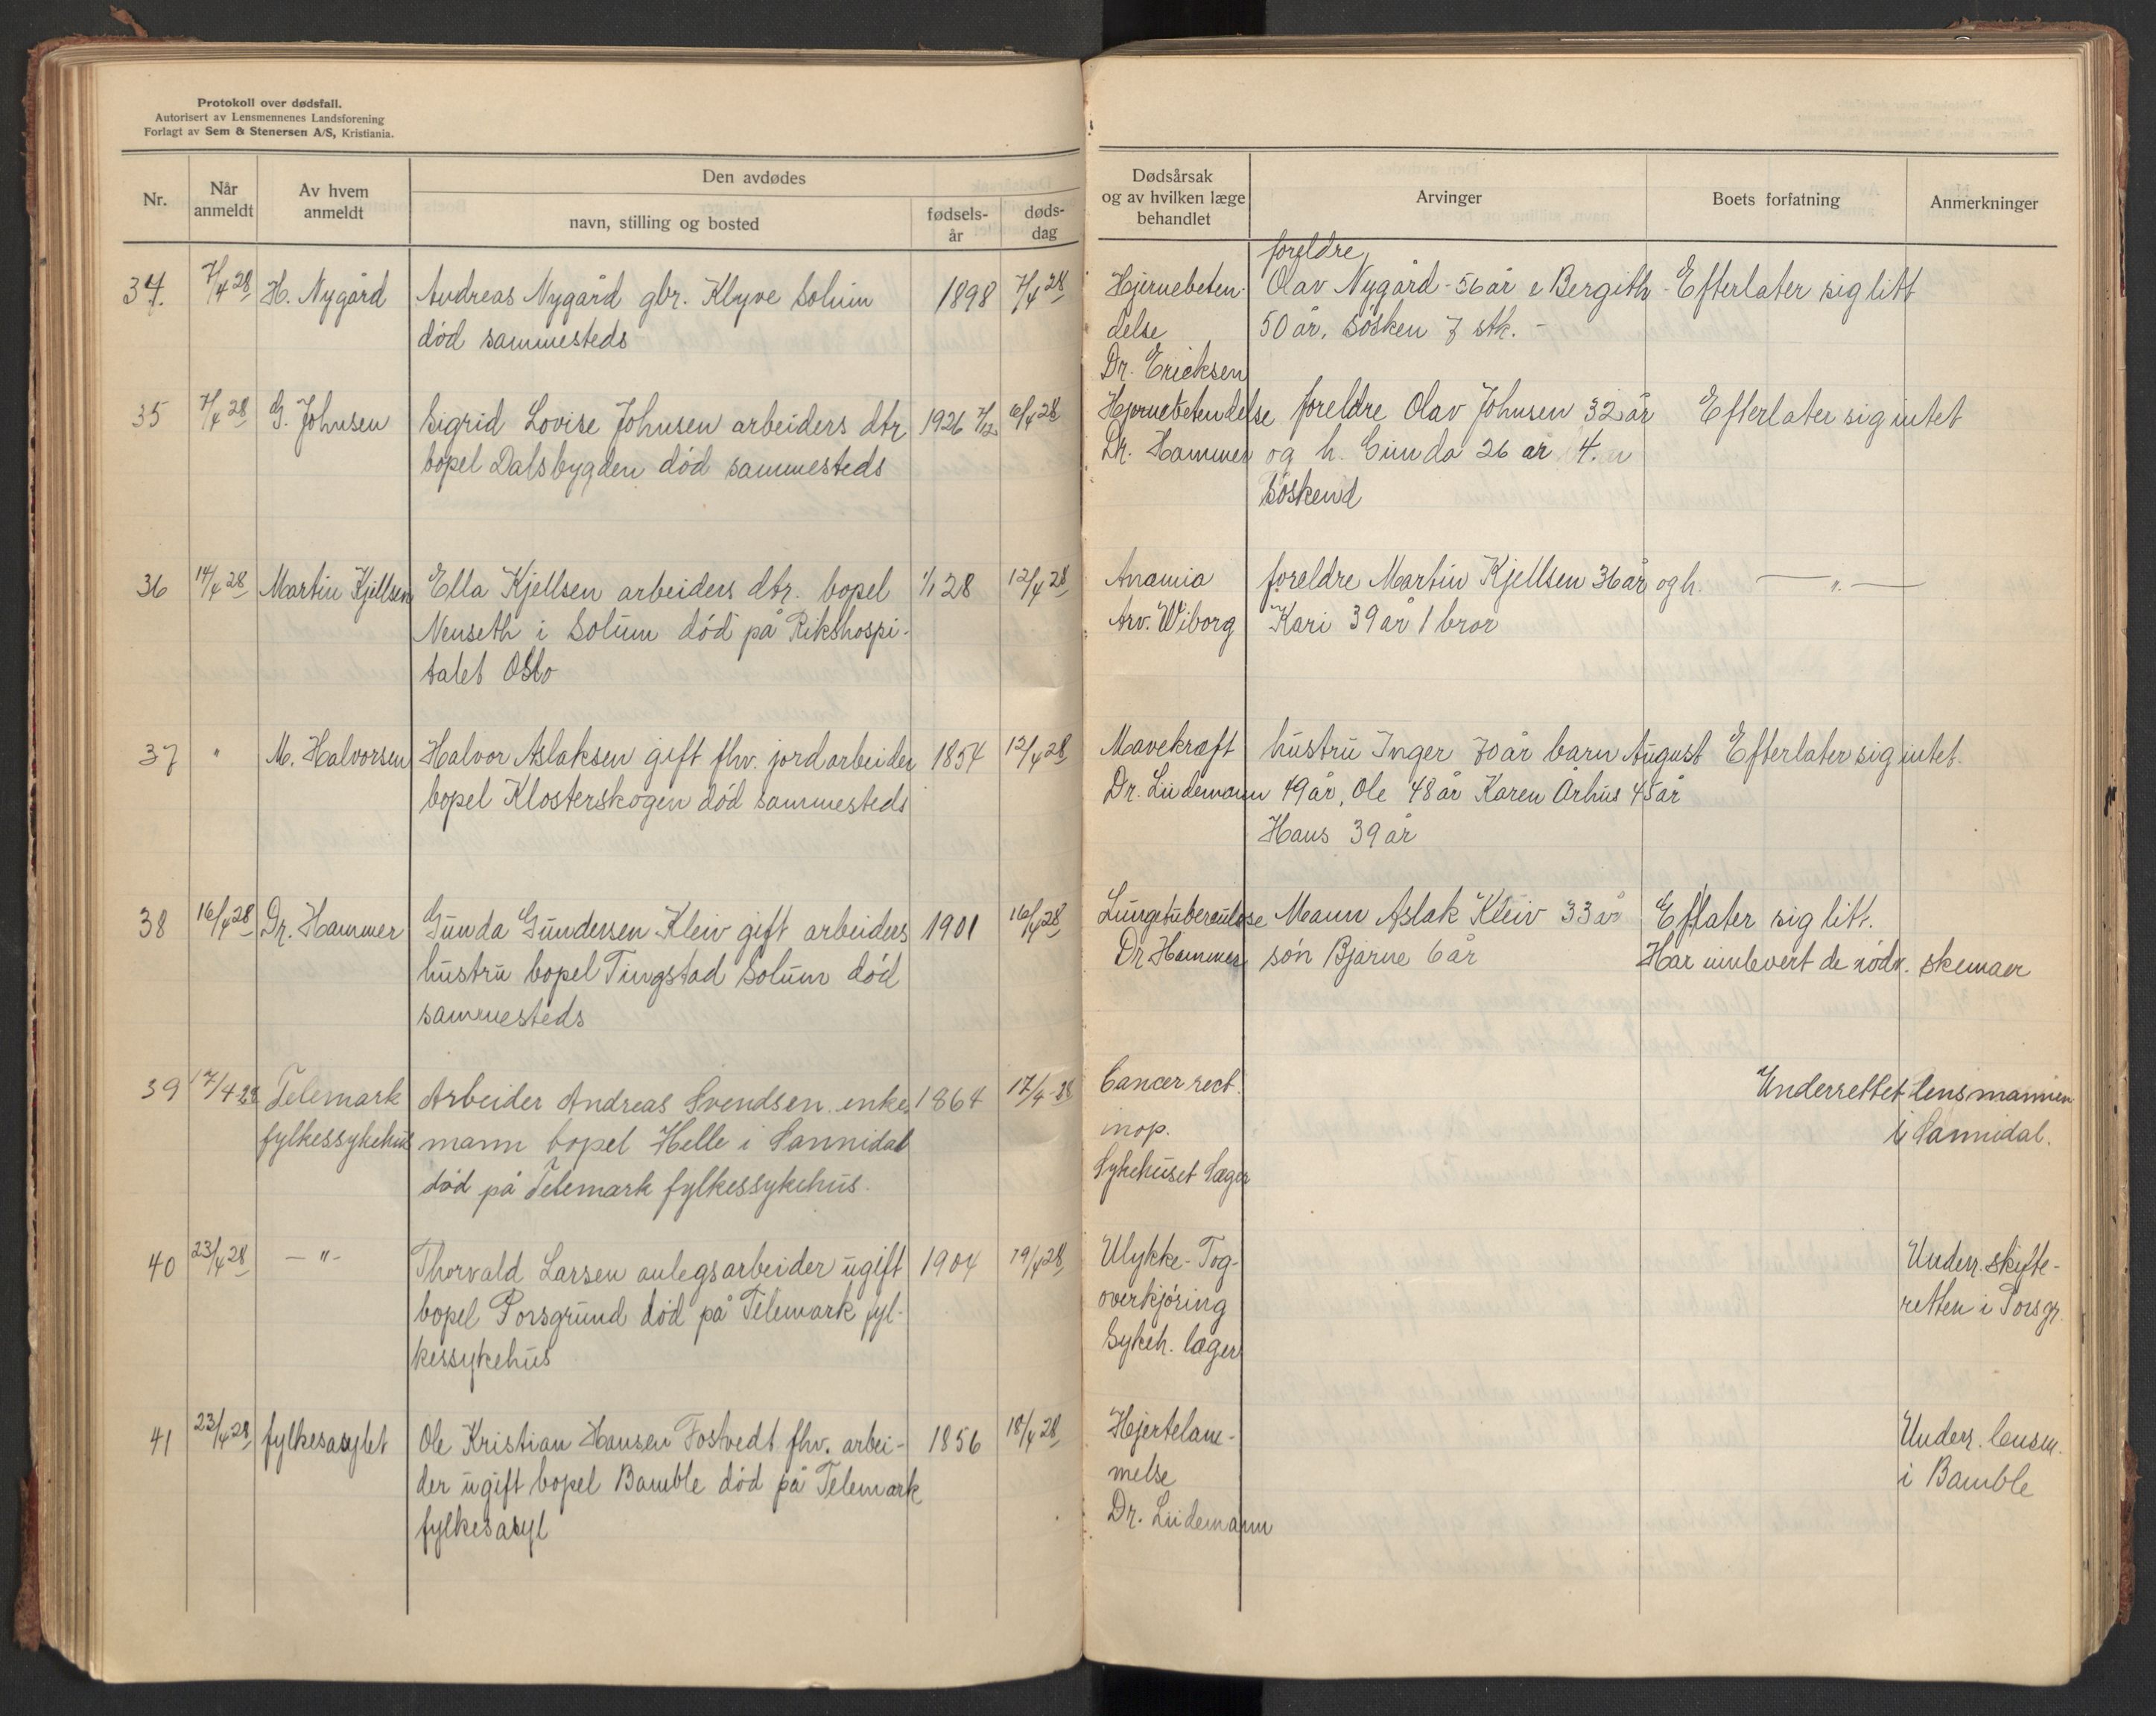 Protokoll over dødsfall.
Autorisert av Lensmennenes Landsforening
Forlagt av Sem & Stenersen A/S, Kristiania.
Nr.
Når anmeldt
Av hvem anmeldt
Den avdødes
navn, stilling og bosted
fødsels-år
døds-dag
Dødsårsak og av hvilken læge behandlet
Arvinger
Boets forfatning
Anmerkninger
34. 7/4 28 H. Nygård Andreas Nygård gbr. Klyve Solum 1898 7/4 28
død sammesteds
Hjernebeten-
delse
Dr. Ericksen
foreldre
Olav Nygård - 56 år & Bergith
50 år. Søsken 7 stk. -
Efterlater sig litt
35 7/4 28 G. Johnsen Sigrid Lovise Johnsen arbeiders dtr 1926 7/12 6/4 28
bopel Dalsbygden død sammesteds
Hjernebetendelse
Dr. Hammer
foreldre Olav Johnsen 32 år
og h. Gunda 26 år 4.
Søskend
Efterlater sig intet
36 14/4 28 Martin Kjellsen Ella Kjellsen arbeiders dtr. bopel 1/1 28 12/4 28
Nenseth i Solum død på Rikshospi-
talet Oslo
Anamia
Arv. Wiborg
foreldre Martin Kjellsen 36 år og h.
Kari 39 år 1 bror
— " —
37 " M. Halvorsen Halvor Aslaksen gift fhv. jordarbeider 1854 12/4 28
bopel Klosterskogen død sammesteds
Mavekræft
Dr. Lindemann
hustru Inger 70 år barn August
49 år, Ole 48 år Karen Århus 45 år
Hans 39 år
Efterlater sig intet.
38 16/4 28 Dr. Hammer Gunda Gundersen Kleiv gift arbeiders 1901 16/4 28
hustru bopel Tingstad Solum død
sammesteds
Lungetuberculose
Dr Hammer
Mann Aslak Kleiv 33 år
søn Bjarne 6 år
Eftlater sig litt.
Har innlevert de nødv. skemaer
39 17/4-28 Telemark fylkessykehus Arbeider Andreas Svendsen enke- 1864 17/4-28
mann bopel Helle i Sannidal
død på Telemark fylkessykehus.
Cancer rect.
inop.
Sykehuset Læger
Underrettet lensmannen
i Sannidal.
40 23/4 28 — " - Thorvald Larsen anlegsarbeider ugift 1904 19/4 28
bopel Porsgrund død på Telemark fyl-
kessykehus
Ulykke-Tog-
overkjøring
Sykeh. læger
Underr. skifte-
retten i Porsgr.
41 23/4 28 fylkesasylet Ole Kristian Hansen Tostvedt fhv. arbei- 1856 18/4 28
der ugift bopel Bamble død på Telemark
fylkesasyl
Hjertelam-
melse
Dr. Lindemann
Underr. lensm.
i Bamble